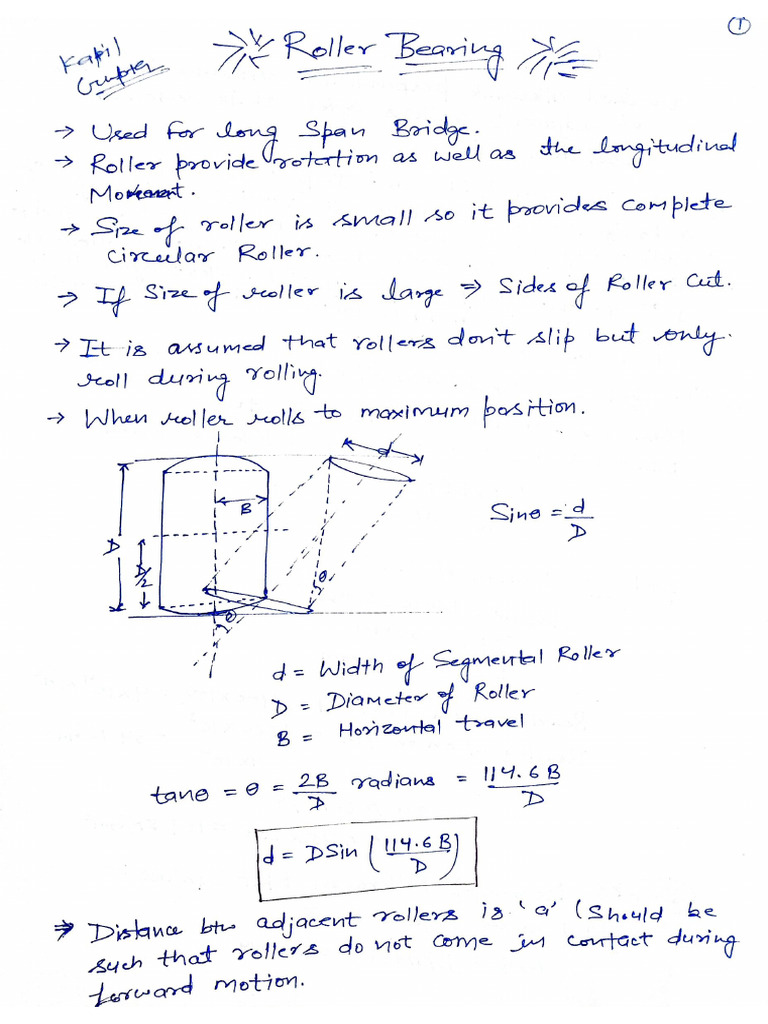 1
Kapil
Gupta
Roller Bearing
→ Used for long Span Bridge.
→ Roller provide rotation as well as the longitudinal
Movement.
→ Size of roller is small so it provides complete
circular Roller.
→ If Size of roller is large ⇒ Sides of Roller Cut.
→ It is assumed that rollers don't slip but only
roll during rolling.
→ When roller rolls to maximum position.
d
B
D
D/2
θ
θ
Sinθ = d/D
d = Width of Segmental Roller
D = Diameter of Roller
B = Horizontal travel
tanθ = θ = 2B/D radians = 114.6B/D
d = DSin (114.6 B/D)
⇒ Distance btw adjacent rollers is 'a' (Should be
such that rollers do not come in contact during
forward motion.